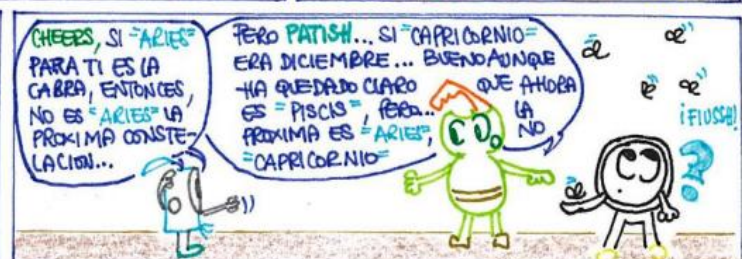 CHEERS, SI "ARIES"
PARA TI ES LA
CABRA, ENTONCES,
NO ES "ARIES" LA
PROXIMA CONSTE-
LACION...
PERO PATISH... SI "CAPRICORNIO"
ERA DICIEMBRE... BUENO AUNQUE
HA QUEDADO CLARO QUE AHORA
ES "PISCIS", PERO... LA
PROXIMA ES "ARIES", NO
"CAPRICORNIO"
¡FIUSSH!
?